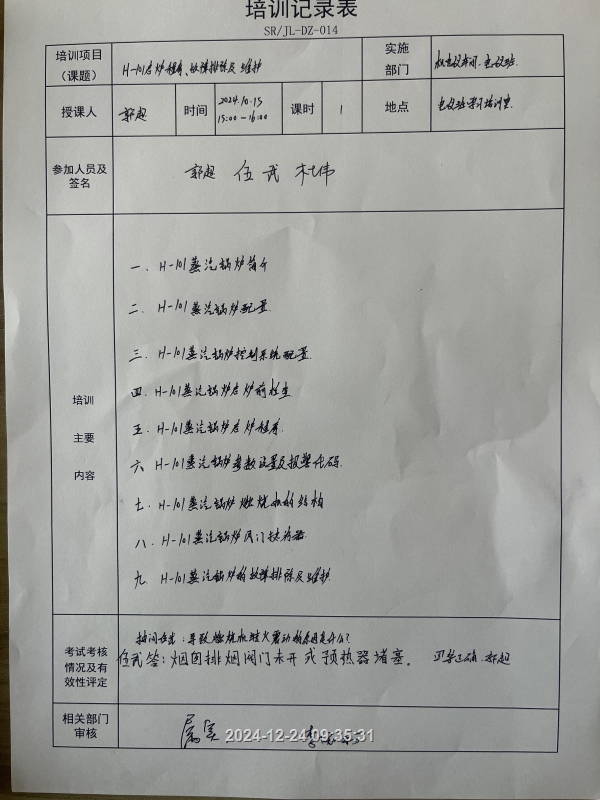 培训记录表
SR/JL-DZ-014
培训项目（课题） H-101启炉程序、故障排除及维护 实施部门 机电仪车间、电仪班
授课人 郭超 时间 2024.10.15 15:00-16:00 课时 1 地点 电仪班学习培训室
参加人员及签名 郭超 伍武 杜伟
培训主要内容
一、H-101蒸汽锅炉简介
二、H-101蒸汽锅炉配置
三、H-101蒸汽锅炉控制系统配置
四、H-101蒸汽锅炉启炉前检查
五、H-101蒸汽锅炉启炉程序
六、H-101蒸汽锅炉参数设置及报警代码
七、H-101蒸汽锅炉燃烧机的结构
八、H-101蒸汽锅炉风门执行器
九、H-101蒸汽锅炉的故障排除及维护
考试考核情况及有效性评定
抽问伍武：导致燃烧机熄火震动的原因是什么？
伍武答：烟囱排烟阀门未开或预热器堵塞。 回答正确 郭超
相关部门审核 属实
2024-12-24 09:35:31